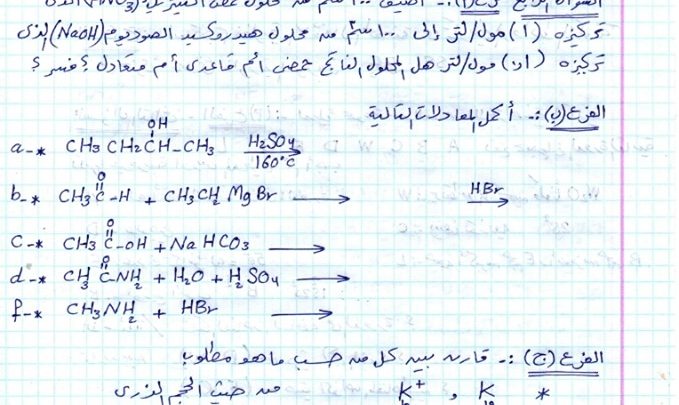 السؤال الرابع فرع (أ) :- أضيف ١٠٠ سم من محلول
تركيزه (١) مول/لتر إلى ١٠٠ سم من محلول هيدروكسيد الصوديوم (NaOH) الذي
تركيزه (١) مول/لتر هل المحلول الناتج حمضي أم قاعدي أم متعادل ؟ فسر ؟
الفرع (ب) :- أكمل المعادلات التالية
OH
a-* CH3 CH2CH-CH3 H2SO4
160°C
O
b-* CH3C-H + CH3CH2MgBr → HBr →
O
c-* CH3C-OH + NaHCO3 →
O
d-* CH3C-NH2 + H2O + H2SO4 →
f-* CH3NH2 + HBr →
الفرع (ج) :- قارن بين كل من حسب ما هو مطلوب
* K و K+ من حيث الحجم الذري